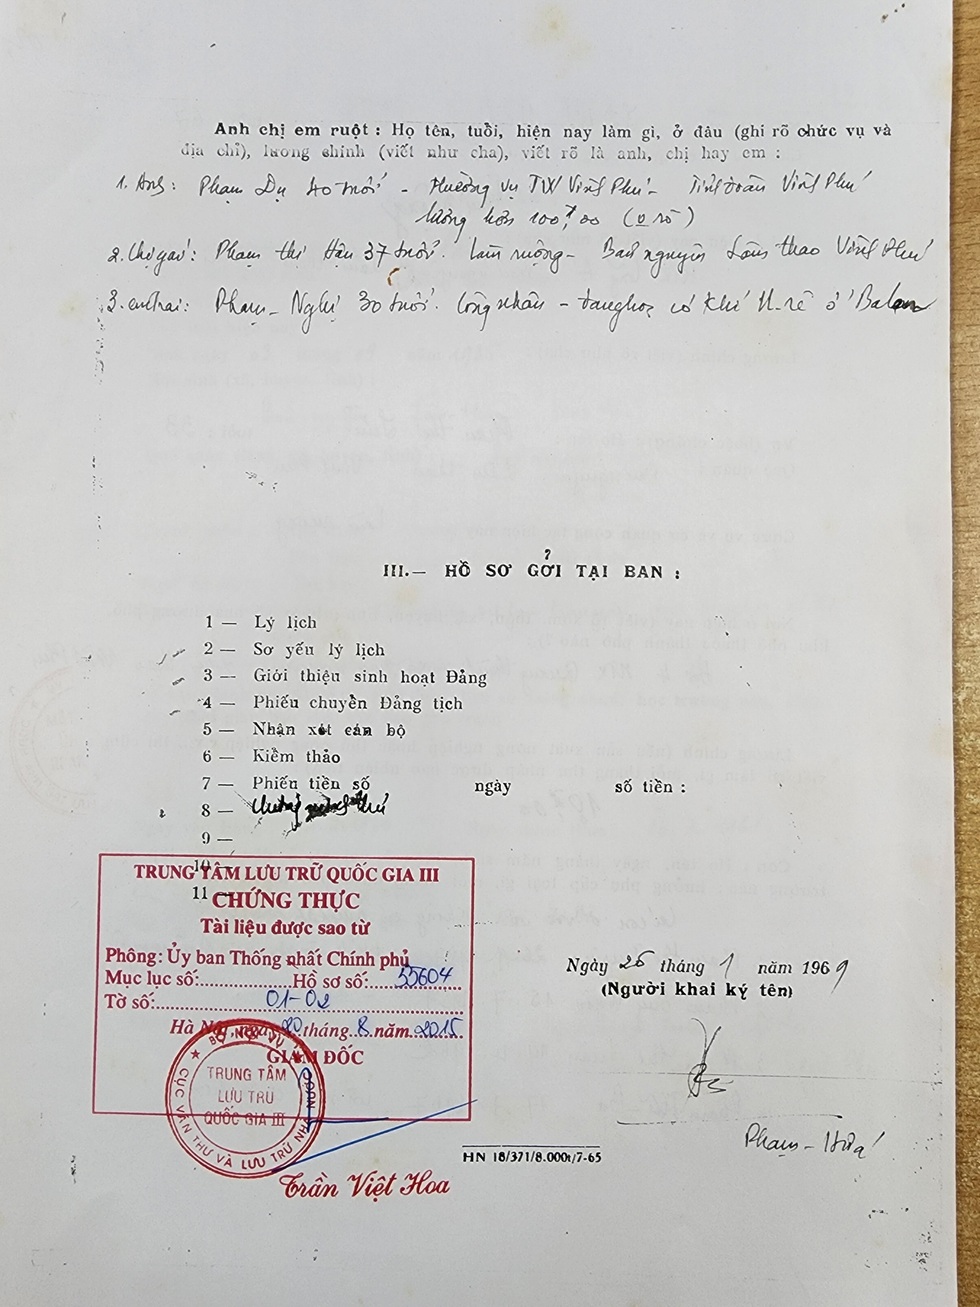 Anh chị em ruột : Họ tên, tuổi, hiện nay làm gì, ở đâu (ghi rõ chức vụ và
địa chỉ), lương chính (viết như cha), viết rõ là anh, chị hay em :
1. Anh : Phạm Dụ 40 tuổi - Thường vụ Vĩnh Phú - Tỉnh đoàn Vĩnh Phú
lương hơn 100,00 (0 rõ)
2. Chị gái : Phạm thị Hậu 37 tuổi. Làm ruộng - Bản nguyên Lâm thao Vĩnh Phú
3. em trai : Phạm - Nghị 30 tuổi. Công nhân - đang học cơ khí ở Balan
III. — HỒ SƠ GỞI TẠI BAN :
1 — Lý lịch
2 — Sơ yếu lý lịch
3 — Giới thiệu sinh hoạt Đảng
4 — Phiếu chuyển Đảng tịch
5 — Nhận xét cán bộ
6 — Kiểm thảo
7 — Phiếu tiền số ngày số tiền :
8 —
9 —
10
11 —
TRUNG TÂM LƯU TRỮ QUỐC GIA III
CHỨNG THỰC
Tài liệu được sao từ
Phông: Ủy ban Thống nhất Chính phủ
Mục lục số:................Hồ sơ số:....55604
Tờ số:............01-02
Hà Nội, ngày 20 tháng 8 năm 2015
GIÁM ĐỐC
BỘ NỘI VỤ
CỤC VĂN THƯ VÀ LƯU TRỮ NHÀ NƯỚC
TRUNG TÂM
LƯU TRỮ
QUỐC GIA III
Trần Việt Hoa
Ngày 26 tháng 1 năm 1969
(Người khai ký tên)
Phạm - Hứa
HN 18/371/8.000t/7-65